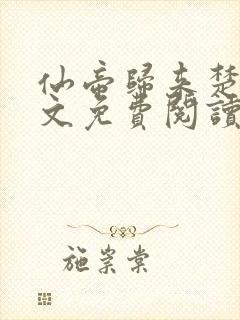 仙帝歸來楚
文免費閱讀
施崇棠